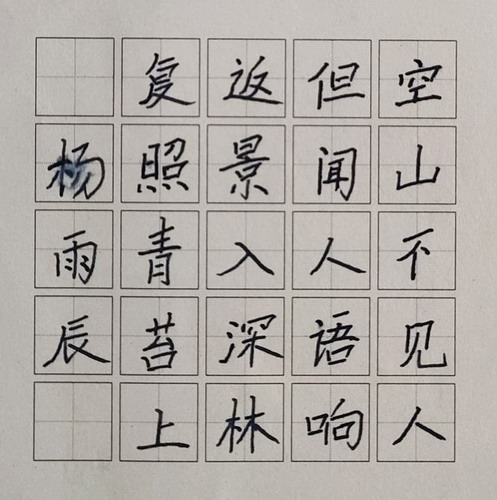 空山不见人
但闻人语响
返景入深林
复照青苔上
杨雨辰